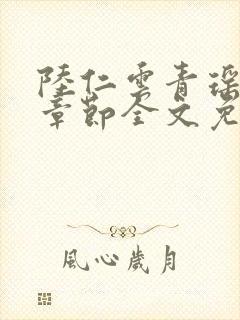 陸仁雲青瑶
章節全文免
風心歲月